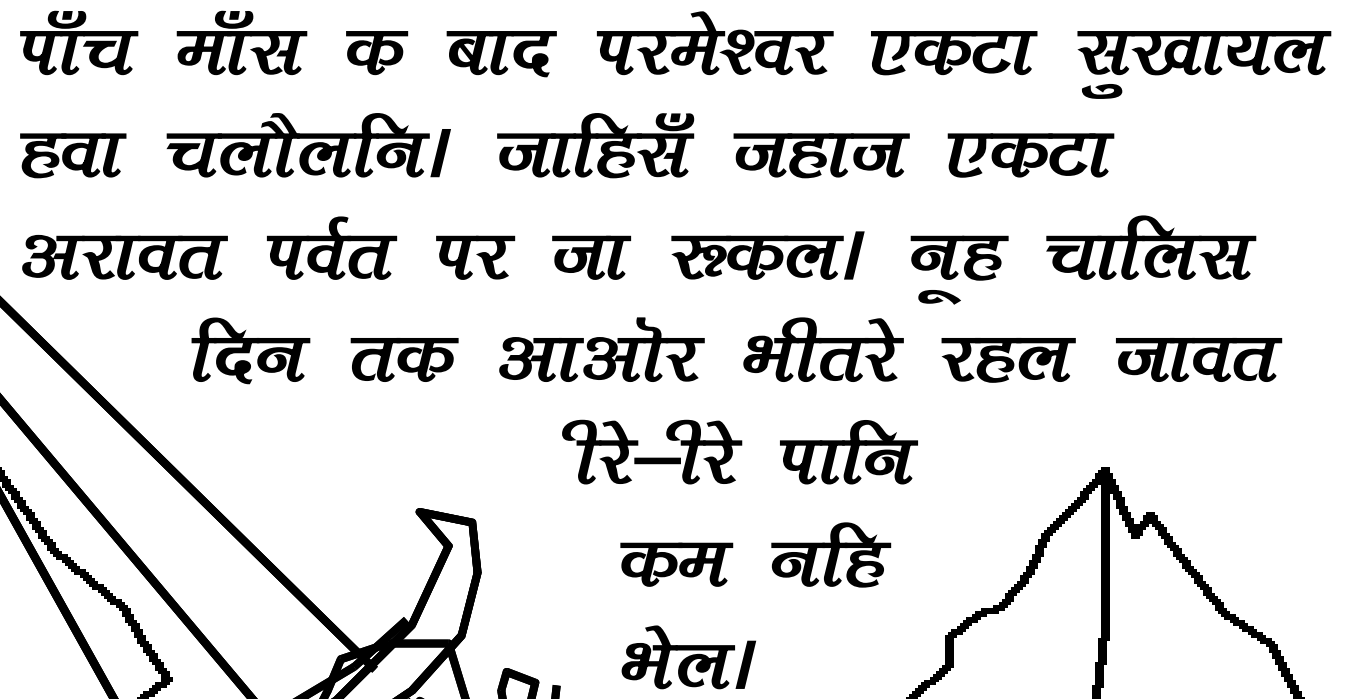 पाँच माँस क बाद परमेश्वर एकटा सुखायल
हवा चलौलनि। जाहिसँ जहाज एकटा
अरावत पर्वत पर जा रूकल। नूह चालिस
दिन तक आओर भीतरे रहल जावत
ीरे–ीरे पानि
कम नहि
भेल।